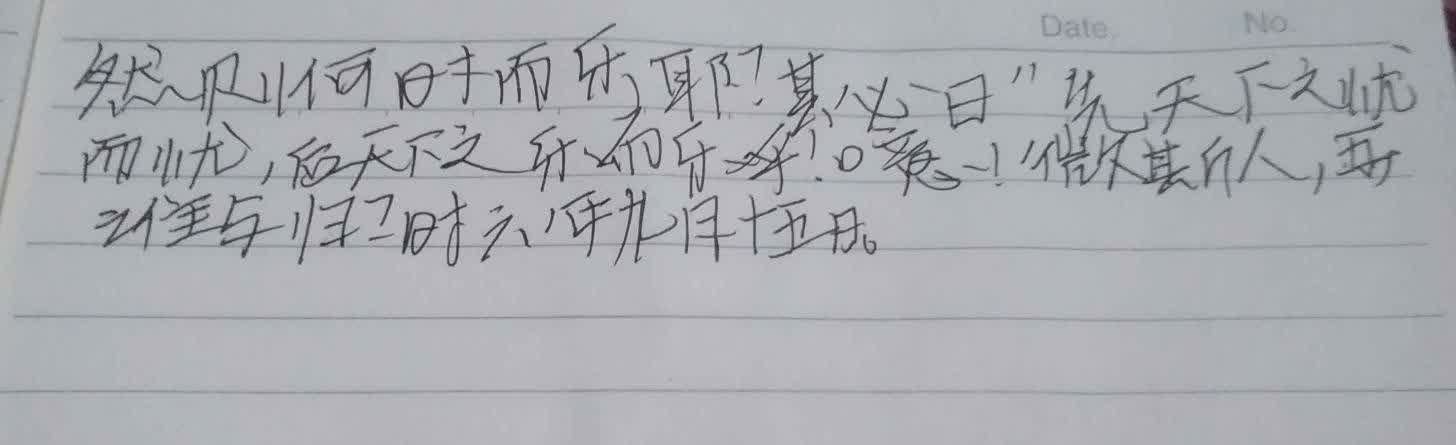 Date. No.
然则何时而乐耶?其必曰"先天下之忧
而忧,后天下之乐而乐乎!噫!微斯人,吾
谁与归?时六年九月十五日。